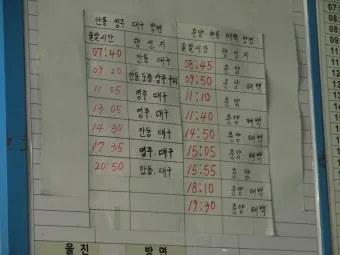 안동 영주 대구 방면
출발시간 행선지
07:40 안동 대구
09:20 안동.도동.상주.구미
11:05 영주 대구
13:05 영주 대구
14:30 안동 대구
17:35 영주.대구
20:50 안동.대구
춘양 안동 태백 방면
출발시간 행선지
08:45 춘양
09:50 춘양 태백
11:10 춘양
11:40 춘양 태백
14:50 춘양 태백
15:05 춘양 태백
15:55 춘양
18:10 춘양 태백
19:30 춘양 태백
울진 방면